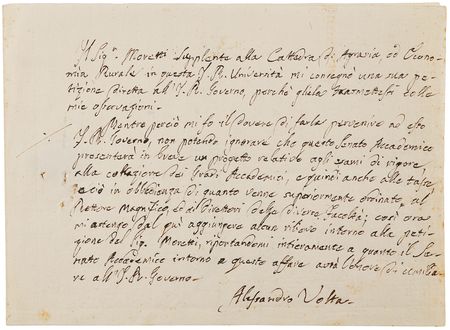 Il Sig.r Moretti Supplente alla Cattedra di Agraria, ed Econo-
mia Rurale in questa I. R. Università mi consegnò una sua pe-
tizione diretta all'I. R. Governo, perchè gliela trasmettessi colle
mie osservazioni.
Mentre perciò mi fo il dovere di farla pervenire ad esso
I. R. Governo, non potendo ignorare che questo Senato Accademico
presenterà in breve un progetto relativo agli esami di rigore,
alla collazione dei Gradi Accademici, e quindi anche alle tasse,
e ciò in obbedienza di quanto venne superiormente ordinato, al
Rettore Magnifico, ed ai Direttori delle diverse facoltà; così ora
mi astengo dal quì aggiungere alcun rilievo intorno alla peti-
zione del Sig. Moretti, riportandomi intieramente a quanto il Se-
nato Accademico intorno a questo affare avrà l'onore di umilia-
re all'I. R. Governo.
Alessandro Volta